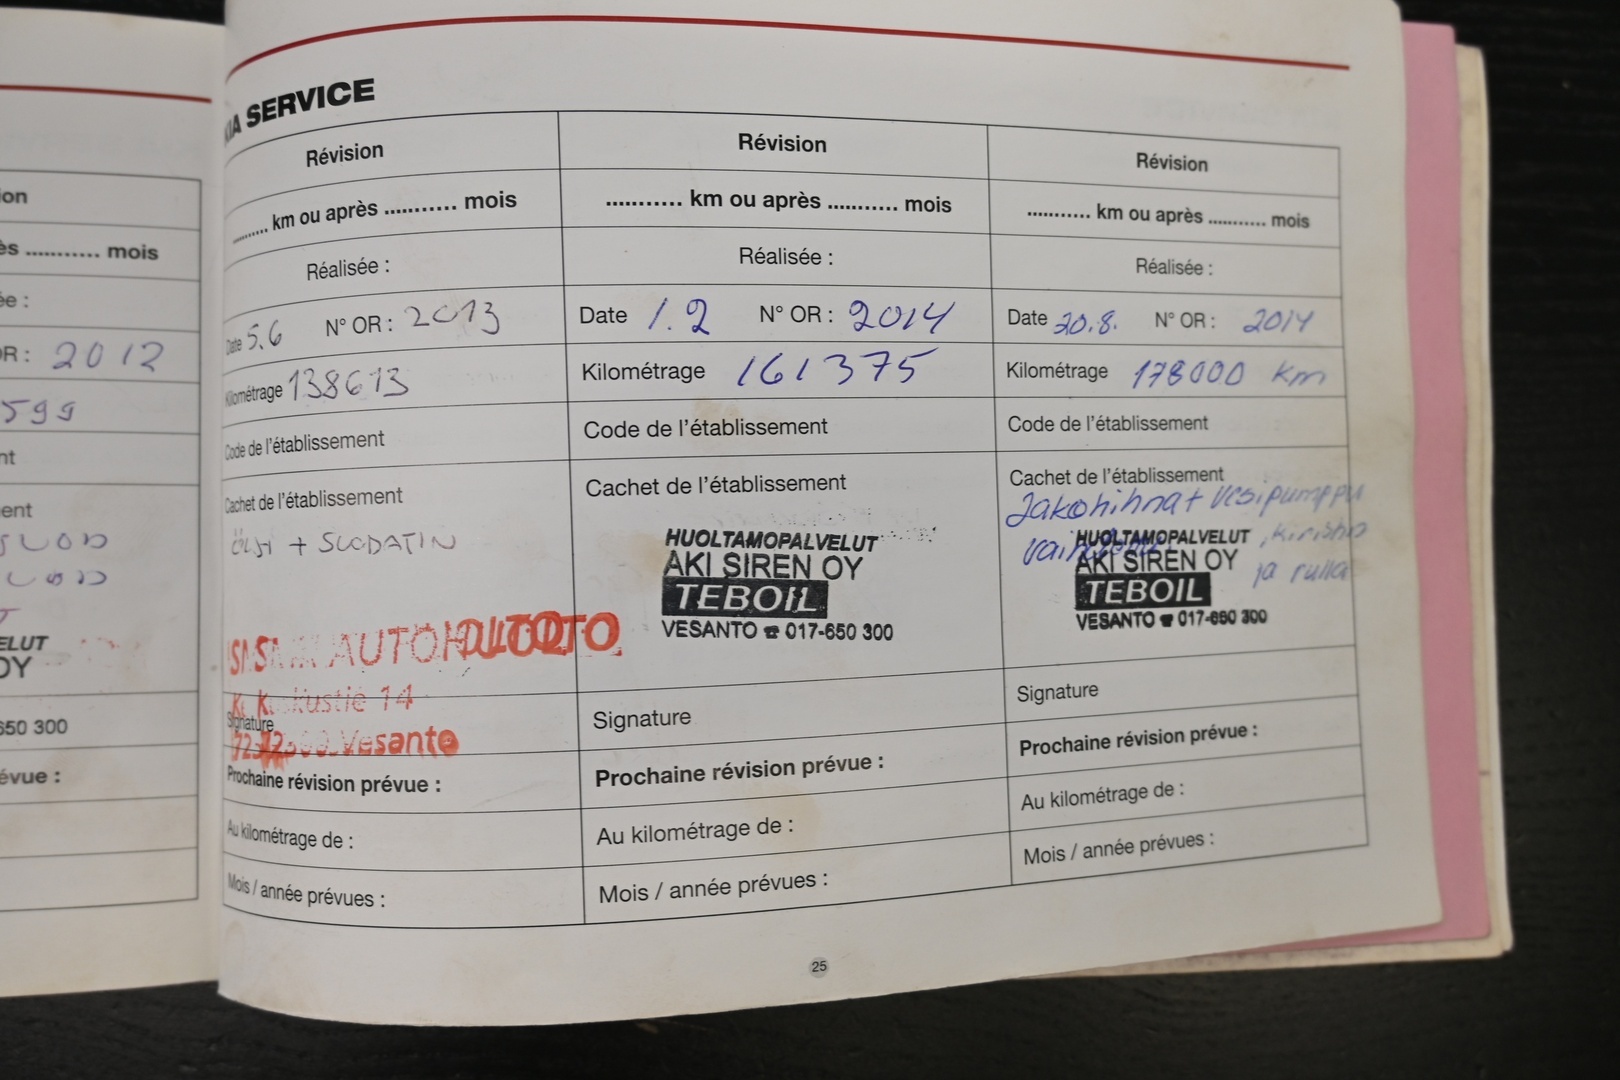 ion
ès ........... mois
ée :
R : 2012
599
nt
ent
SUOD
ELUT
OY
650 300
évue :
KIA SERVICE
Révision
.......... km ou après ........... mois
Réalisée :
Date 5.6 N° OR : 2013
Kilométrage 138613
Code de l'établissement
Cachet de l'établissement
ÖLJI + SUODATIN
AUTOHUOLTO
Keskustie 14
Signature
72300 Vesanto
Prochaine révision prévue :
Au kilométrage de :
Mois / année prévues :
Révision
........... km ou après ........... mois
Réalisée :
Date 1.2 N° OR : 2014
Kilométrage 161375
Code de l'établissement
Cachet de l'établissement
HUOLTAMOPALVELUT
AKI SIREN OY
TEBOIL
VESANTO ☎ 017-650 300
Signature
Prochaine révision prévue :
Au kilométrage de :
Mois / année prévues :
Révision
........... km ou après ........... mois
Réalisée :
Date 20.8. N° OR : 2014
Kilométrage 178000 km
Code de l'établissement
Cachet de l'établissement
Jakohihna + vesipumppu
, kiristin
ja rulla
HUOLTAMOPALVELUT
AKI SIREN OY
TEBOIL
VESANTO ☎ 017-650 300
Signature
Prochaine révision prévue :
Au kilométrage de :
Mois / année prévues :
25